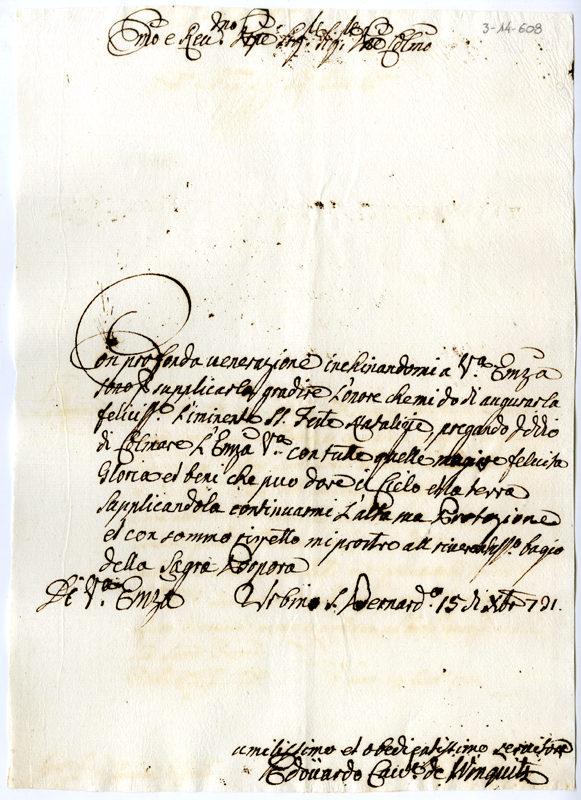 3-14-608
Emo e Rev.mo Sig.re Sig.r Pne Colmo
Con profonda veneratione inchinandomi a V.a Emza
sono supplicarla gradire l'onore che mi do di augurarla
feliciss.e l'iminente SS. Feste Natalizie, pregando Iddio
di Colmare l'Emza V.a con tutte quelle magior felicita
Gloria et beni che puo dare il Cielo et la terra
Supplicandola continuarmi l'alta sua Protezione
et con sommo rispetto mi prostro all riverentiss.o bagio
della Sagra Porpora
De V.a Emza Urbino S. Bernard.o 15 di Xbre 721.
umilissimo et obedientissimo servitore
Edoüardo Cav.e de